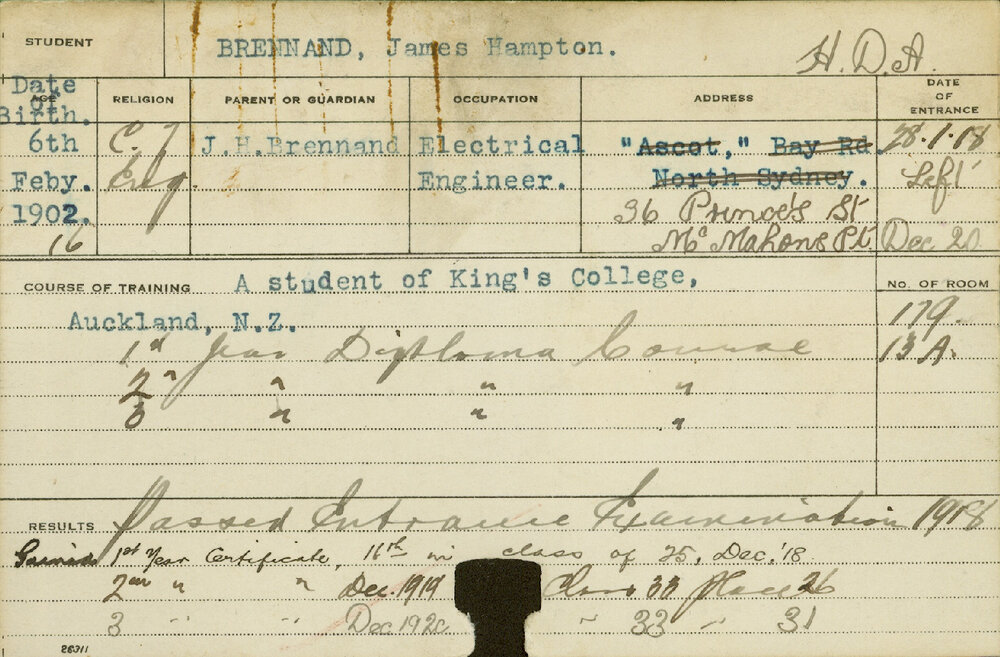 STUDENT BRENNAND, James Hampton. H.D.A.
Date of Birth. AGE RELIGION PARENT OR GUARDIAN OCCUPATION ADDRESS DATE OF ENTRANCE
6th C. J.H.Brennand Electrical "Ascot," Bay Rd. 28.1.18
Feby. Eng. Engineer. North Sydney. Left
1902. 36 Prince's St
16 McMahons Pt. Dec 20
COURSE OF TRAINING A student of King's College, NO. OF ROOM
Auckland, N.Z. 179.
1st year Diploma Course 13 A.
2n " " "
3 " " "
RESULTS Passed Entrance Examination 1918
Gained 1st Year Certificate, 16th in class of 25, Dec. '18
2nd " " Dec. 1919 Class 33 place 26
3 " " Dec 1920 " 33 " 31
26311